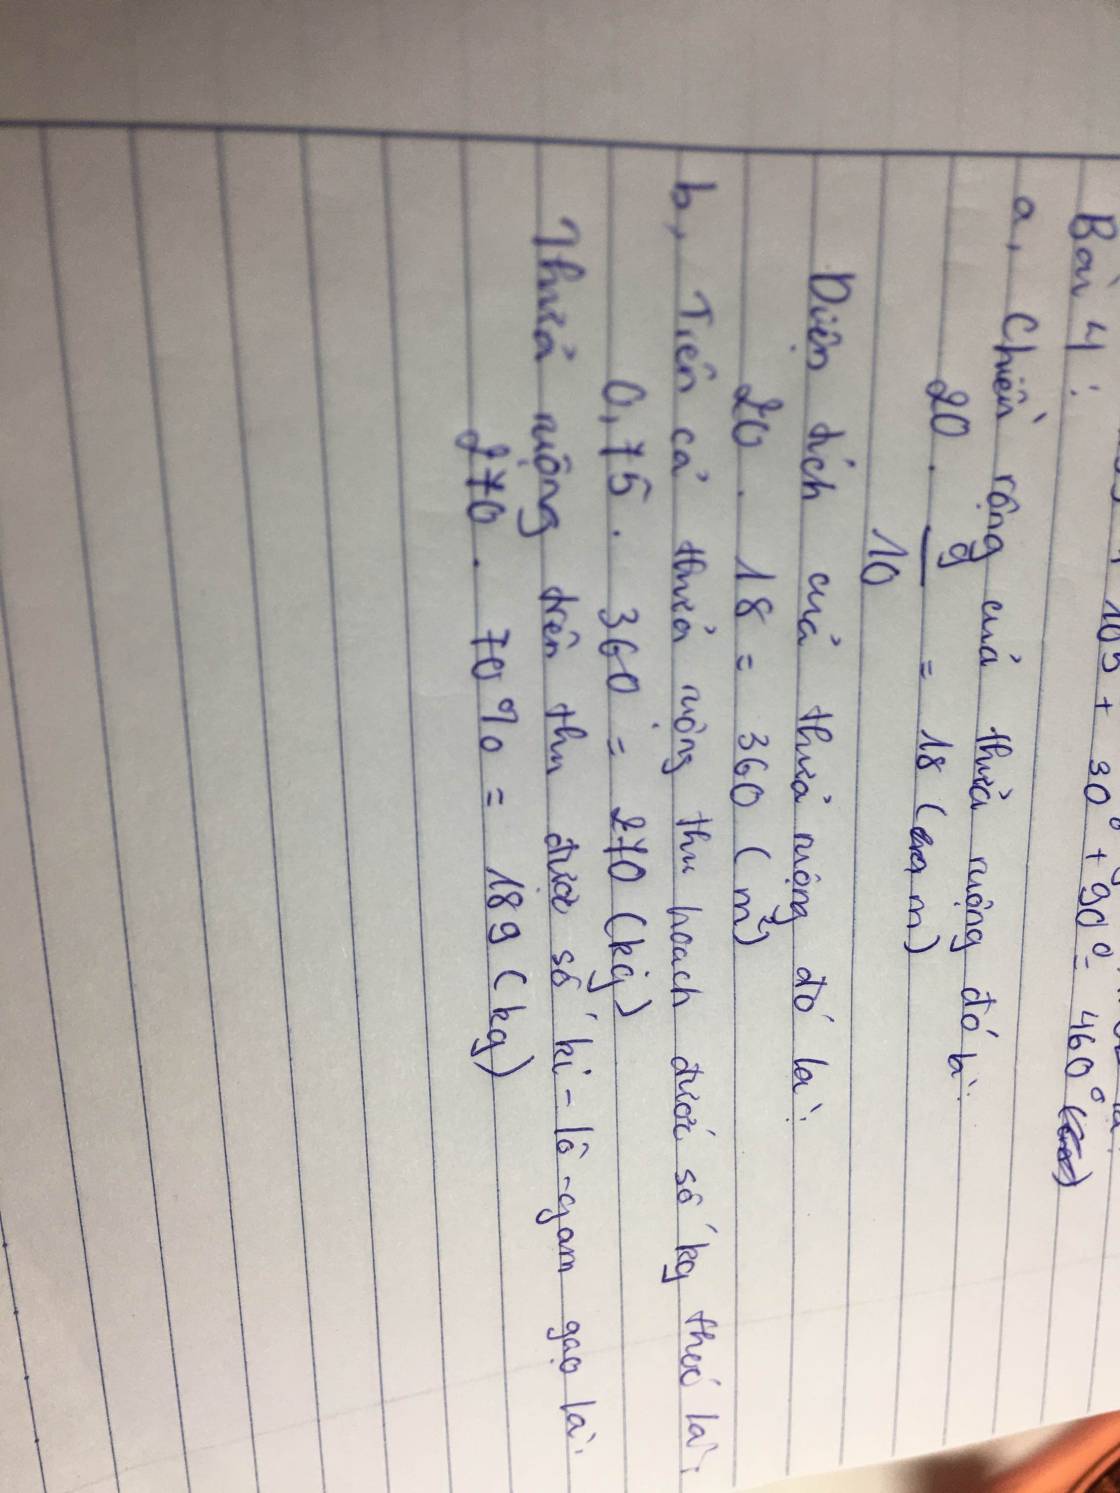 105 + 30° + 90° = 460°
Bài 4 :
a, Chiều rộng của thửa ruộng đó là:
20 . 9/10 = 18 (m)
Diện tích của thửa ruộng đó là:
20 . 18 = 360 (m²)
b, Trên cả thửa ruộng thu hoach được số kg thoc là:
0,75 . 360 = 270 (kg)
Thửa ruộng trên thu được số ki-lô-gam gạo là:
270 . 70% = 189 (kg)